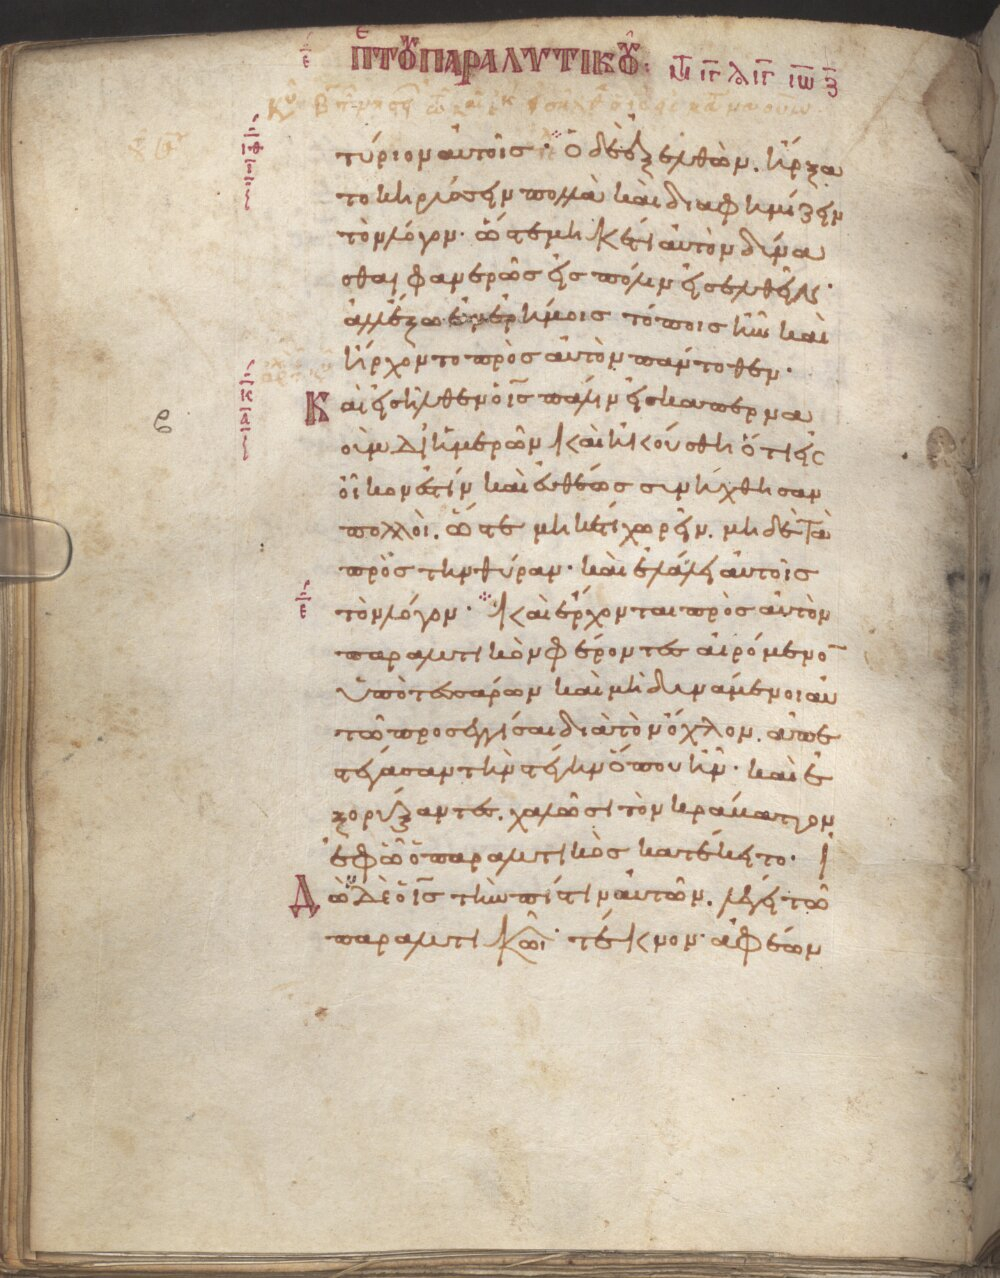 ε
π τοῦ παραλυτικοῦ: Μ ΙΓ Λ ΙΓ ΙΩ Ζ
τύριον αὐτοῖς· ὁ δὲ ἐξελθὼν. ἤρξα
το κηρύσσειν πολλὰ καὶ διαφημίζειν
τὸν λόγον· ὥστε μηκέτι αὐτὸν δύνα
σθαι φανερῶς εἰς πόλιν εἰσελθεῖν·
ἀλλ' ἔξω ἐν ἐρήμοις τόποις ἦν καὶ
ἤρχοντο πρὸς αὐτὸν πάντοθεν·
Καὶ εἰσῆλθεν ὁ ις πάλιν εἰς καπερνα
οὺμ δι' ἡμερῶν καὶ ἠκούσθη ὅτι εἰς
οἶκον ἐστίν καὶ εὐθέως συνήχθησαν
πολλοὶ. ὥστε μηκέτι χωρεῖν. μηδὲ τὰ
πρὸς τὴν θύραν· καὶ ἐλάλει αὐτοῖς
τὸν λόγον· Καὶ ἔρχονται πρὸς αὐτὸν
παραλυτικὸν φέροντες αἰρόμενο̄
ὑπὸ τεσσάρων καὶ μὴ δυνάμενοι αὐ
τῶ προσεγγίσαι διὰ τὸν ὄχλον. ἀπε
στέγασαν τὴν στέγην ὅπου ἦν· καὶ ἐ
ξορύξαντες. χαλῶσι τὸν κράβαττον
ἐφ' ὧ ὁ παραλυτικὸς κατέκειτο·
Ἰδὼν δὲ ὁ ις τὴν πίστιν αὐτῶν. λέγει τῶ
παραλυτικῶι· τέκνον ἀφέων